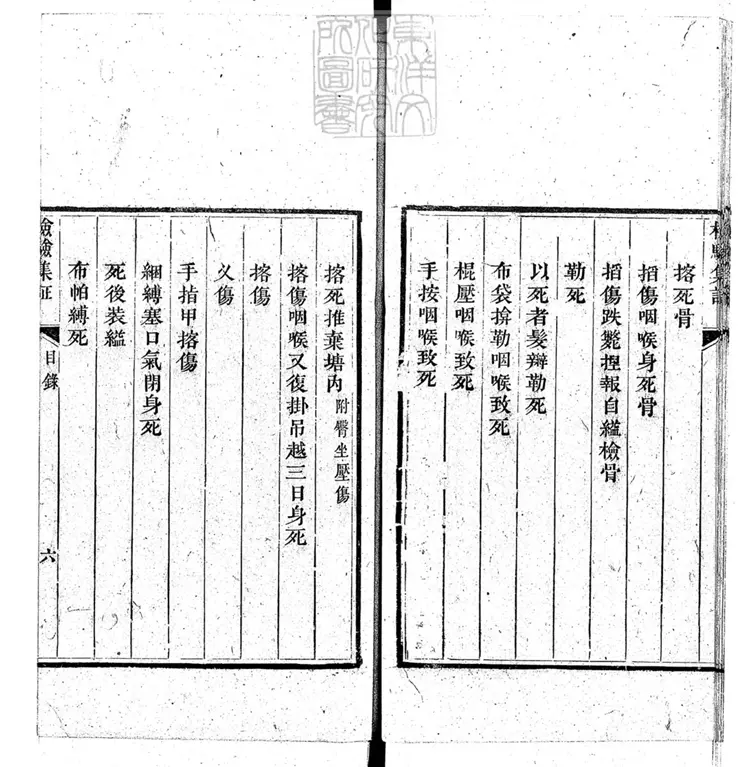 東洋文
化研究
所圖書
搭死骨
掐傷咽喉身死骨
掐傷跌斃捏報自縊檢骨
勒死
以死者髮辮勒死
布袋揜勒咽喉致死
棍壓咽喉致死
手按咽喉致死
搭死推棄塘內 附臀坐壓傷
搭傷咽喉又復掛吊越三日身死
搭傷
又傷
手指甲搭傷
綑縛塞口氣閉身死
死後裝縊
布帕縛死
檢驗集証
目錄
六